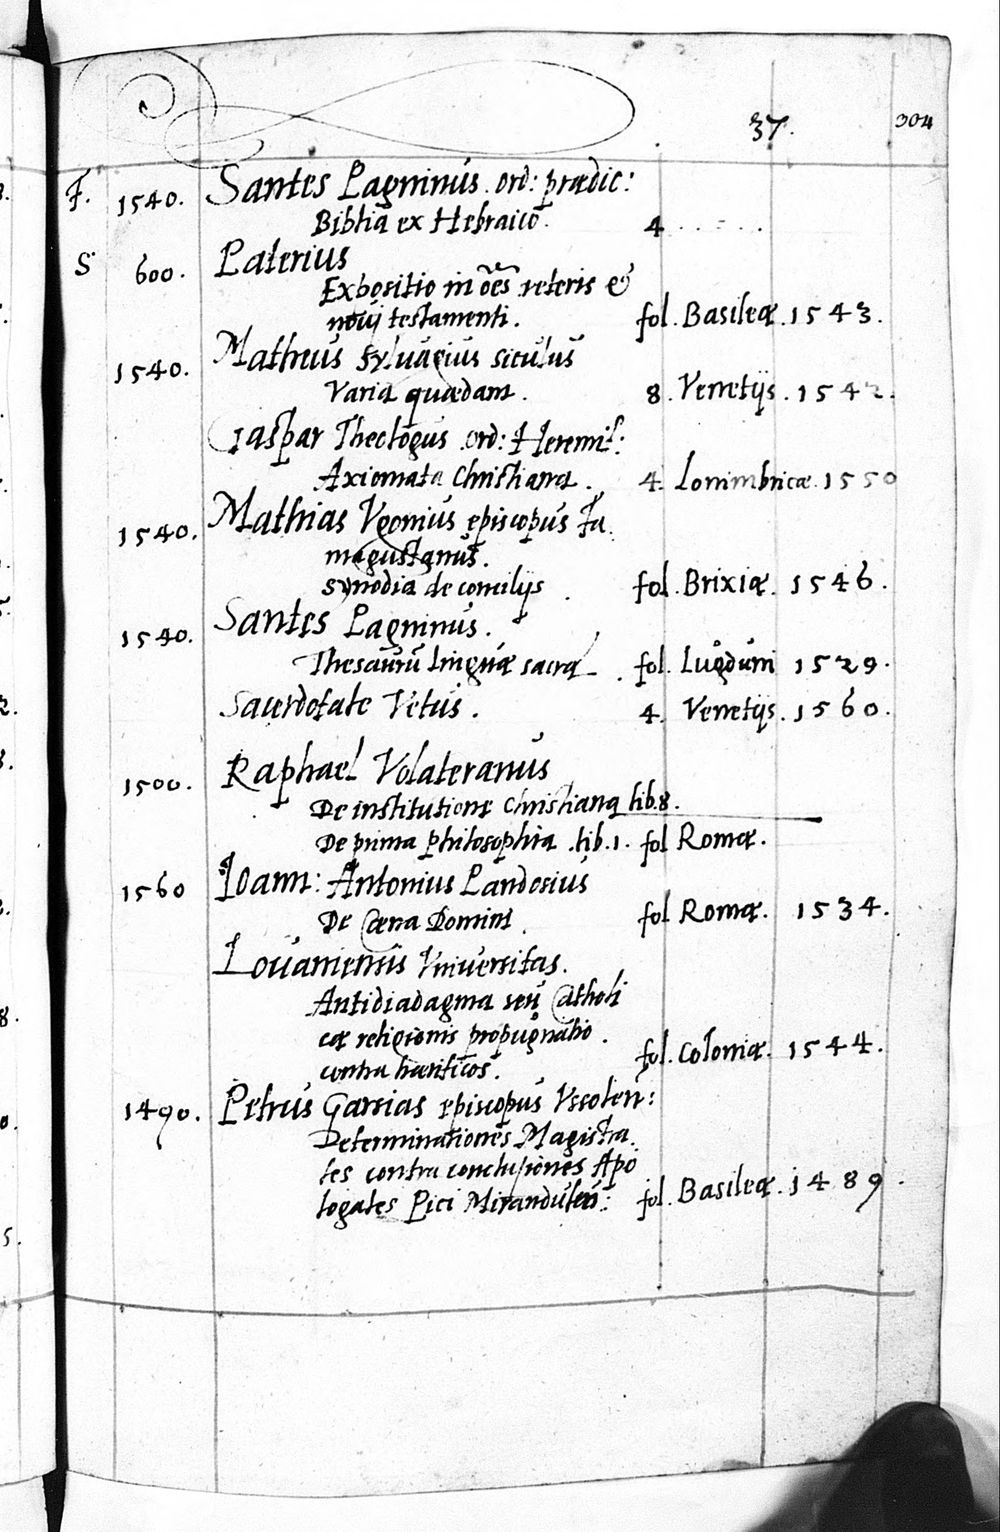 37. 304
F. 1540. Santes Pagninus. ord: prædic:
Biblia ex Hebraico. 4 . . . . .
S 600. Paterius
Expositio in oēs veteris &
novij testamenti. fol. Basileæ. 1543.
1540. Matheus Sylvagius siculus
Varia quædam. 8. Venetijs. 1542.
Gaspar Theologus ord: Heremit:
Axiomata Christiana. 4. Conimbricæ. 1550
1540. Mathias Vgonius episcopus Fa
magustanus.
Synodia de concilijs fol. Brixiæ. 1546.
1540. Santes Pagninus.
Thesaurū linguæ sacræ. fol. Lugduni 1529.
Sacerdotale Vetus. 4. Venetijs. 1560.
1500. Raphael Volateranus
De institutione christiana lib. 8.
De prima philosophia. lib. 1. fol Romæ.
1560 Ioann: Antonius Pandosius
De Cœna Domini. fol Romæ. 1534.
Lovaniensis Vniversitas.
Antididagma seu Catholi
cæ religionis propugnatio.
contra hæreticos. fol. Coloniæ. 1544.
1490. Petrus Garsias episcopus Vssolen:
Determinationes Magistra
les contra conclusiones Apo
logales Pici Mirandulen: fol. Basileæ. 1489.